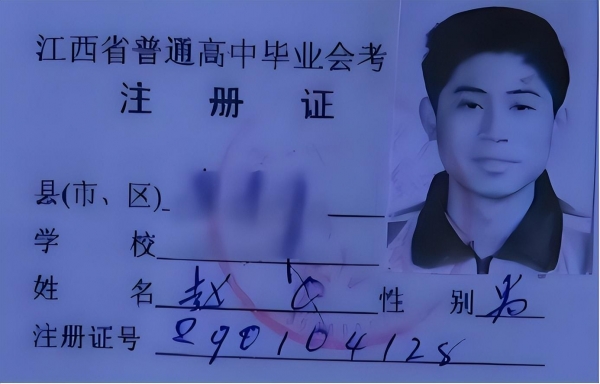 江西省普通高中毕业会考
注册证
县(市、区)
学校
姓名 赵 性别 男
注册证号 8901104128